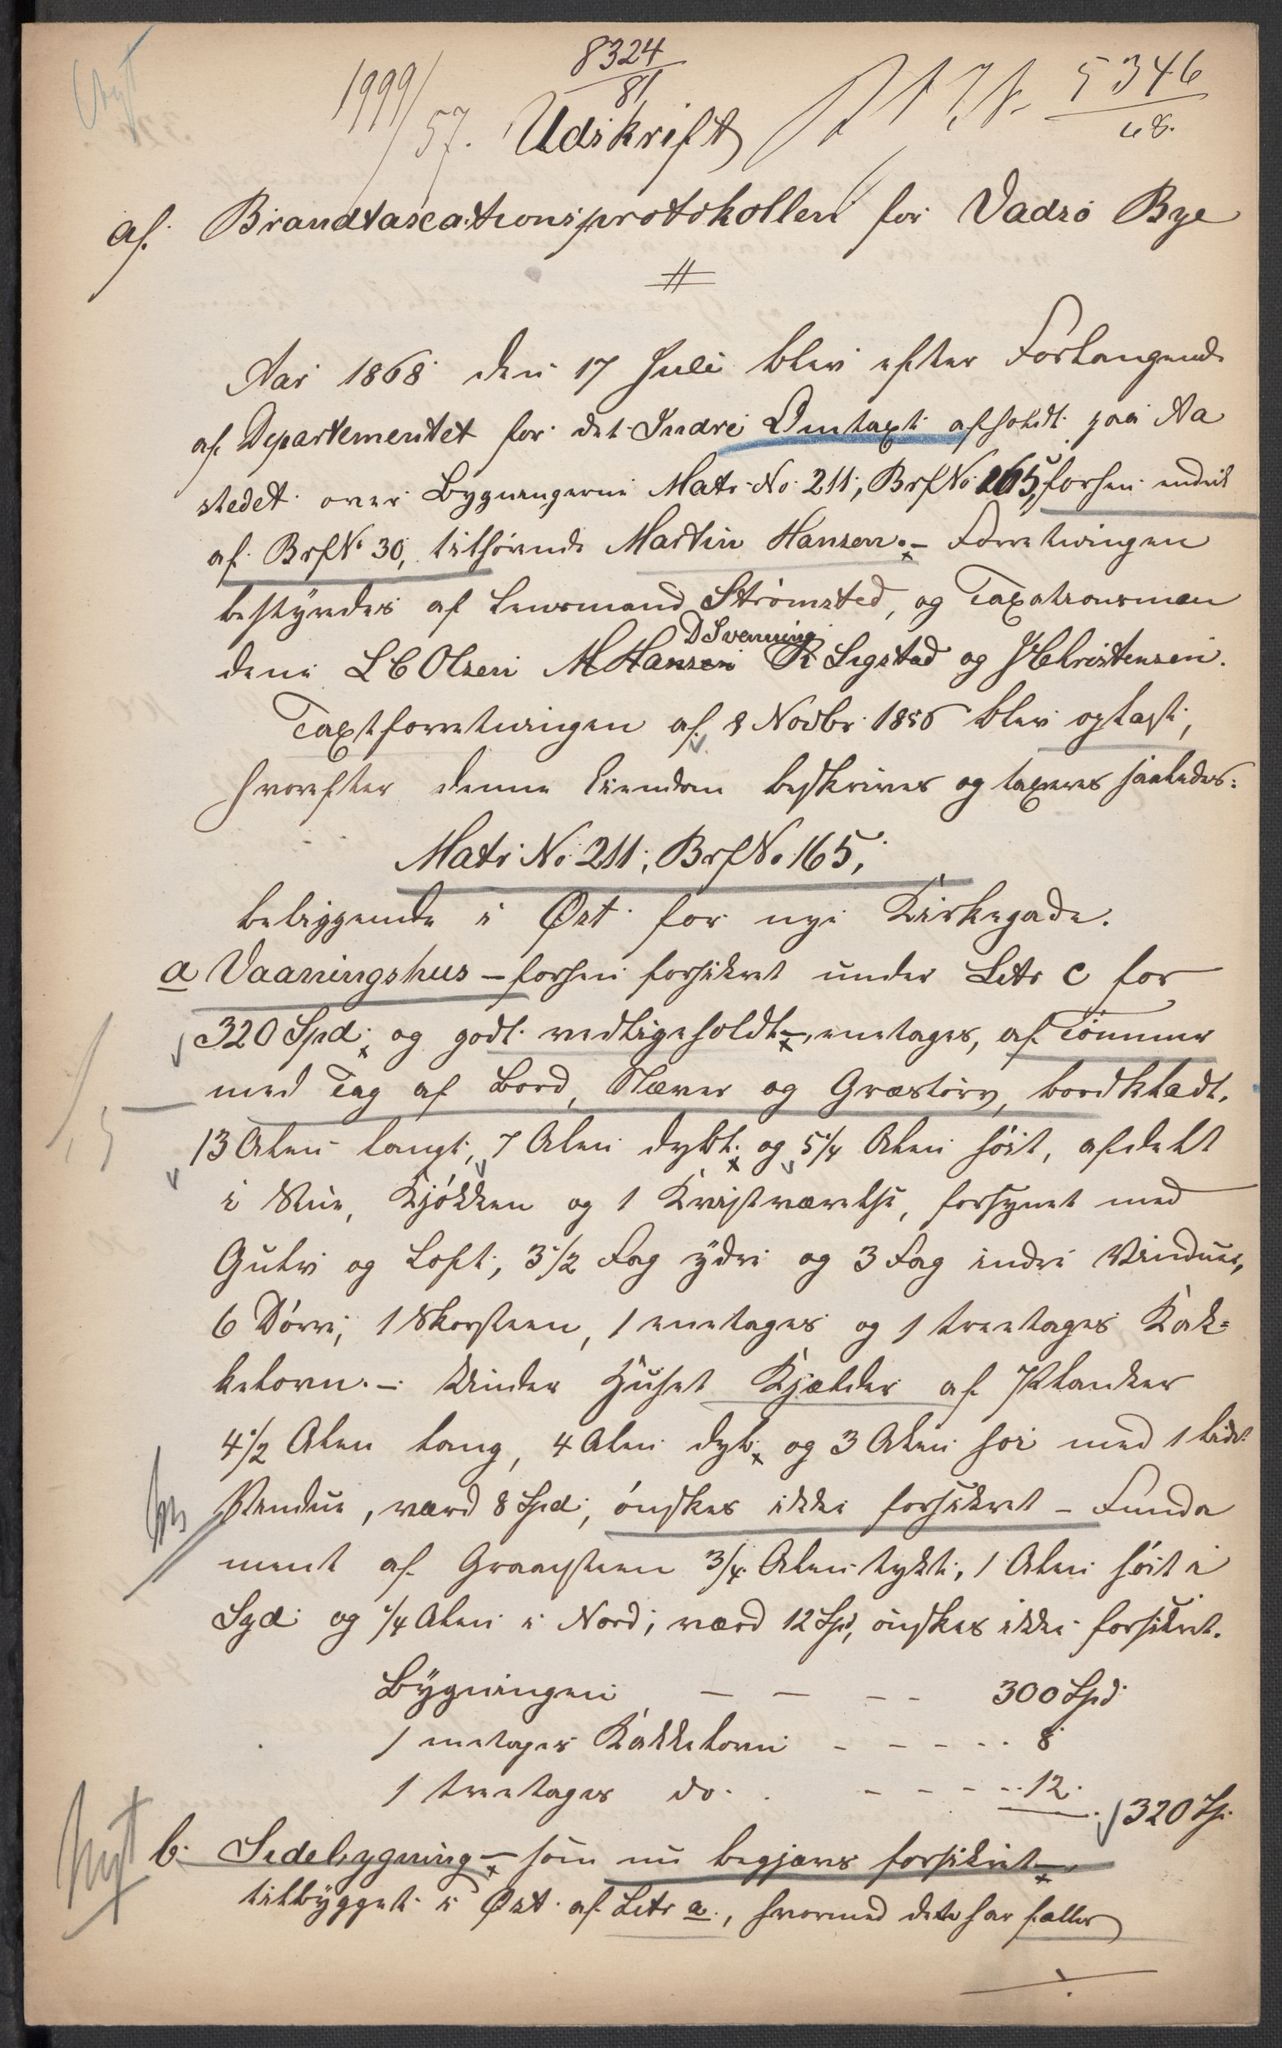 Nyt
1999/57.
8324/81
5346/68.
Udskrift
af Brandtaxationsprotokollen for Vadsø Bye
Aar 1868 den 17 Juli blev efter Forlangende
af Departementet for det Indre Omtaxt afholdt paa Aa
stedet over Bygningerne Matr No 211, BrfNo 165, forhen indeh
af BrfNo 30, tilhørende Martin Hansen. – Forretningen
bestyredes af Lensmand Strømsted, og Taxationsmæn
D Svenning
dene L C Olsen M Hansen R Sigstad og J Christensen.
Taxtforretningen af 8 Novbr 1856 blev oplæst,
hvorefter denne Eiendom beskrives og taxeres saaledes:
Matr No 211, BrfNo 165,
beliggende i Øst for nye Kirkegade.
a Vaaningshus – forhen forsikret under Litr c for
320 Spd. og godt vedligeholdt –, enetages, af Tømmer
med Tag af Bord, Næver og Græstørv, bordklædt,
13 Alen langt, 7 Alen dybt og 5 1/4 Alen høit, afdelt
i Stue, Kjøkken og 1 Kvistværelse, forsynet med
Gulv og Loft, 3 1/2 Fag ydre og 3 Fag indre Vinduer,
6 Dørre, 1 Skorsteen, 1 enetages og 1 treetages Kak-
kelovn. – Under Huset Kjelder af Planker
4 1/2 Alen lang, 4 Alen dyb og 3 Alen høi med 1 lidet
Vindue, værd 8 Spd, ønskes ikke forsikret – Funda
ment af Graasteen 3/4 Alen tykt, 1 Alen høit i
Syd og 1/4 Alen i Nord, værd 12 Spd, ønskes ikke forsikret.
Bygningen – – – – 300 Spd
1 enetages Kakkelovn – – – – 8
1 treetages do. – – – – 12.
320 Sp.
Nyt
b. Sidebygning – som nu begjæres forsikret –,
tilbygget i Øst af Litr a., hvormed dette har fælles